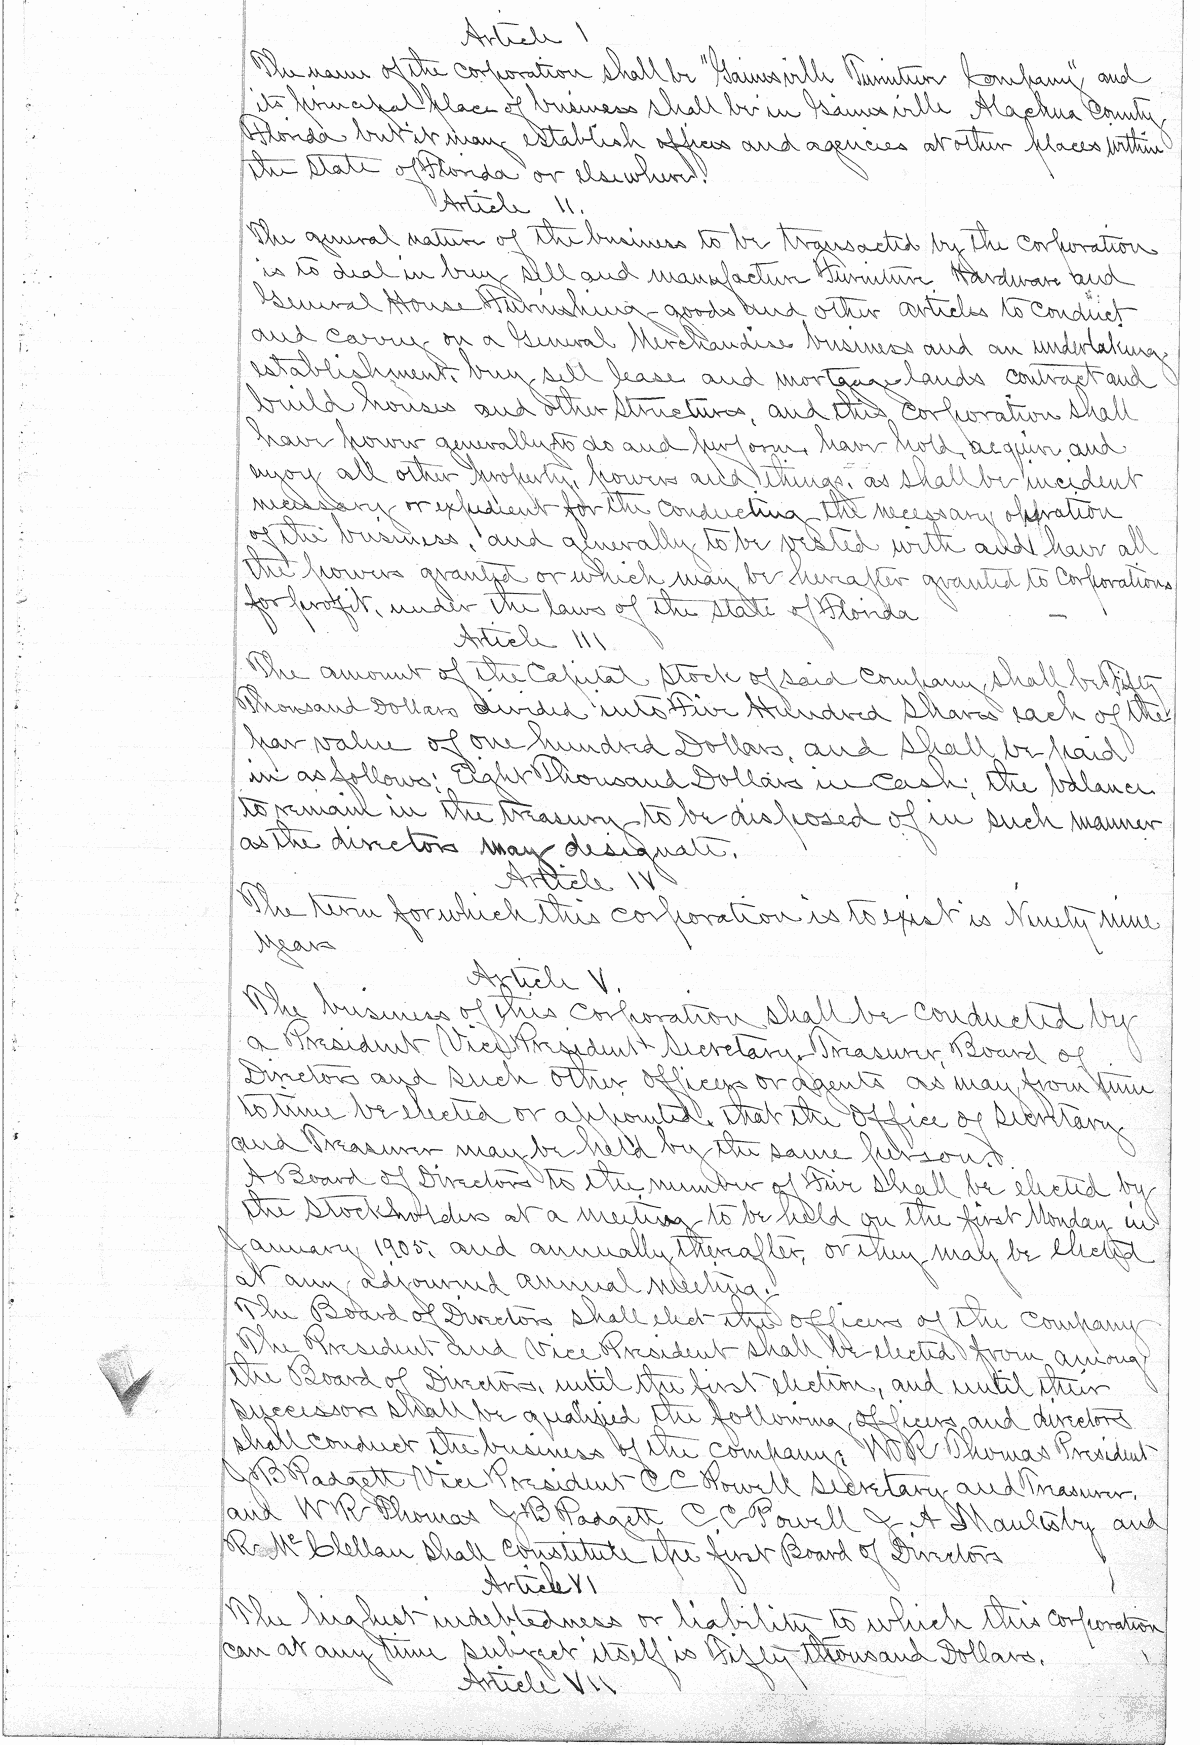 Article I
The name of the corporation shall be "Gainesville Furniture Company" and
its principal place of business shall be in Gainesville Alachua County
Florida but it may establish offices and agencies at other places within
the State of Florida or elsewhere.
Article II.
The general nature of the business to be transacted by the corporation
is to deal in buy sell and manufacture Furniture, Hardware and
General House Furnishing goods and other articles to conduct
and carry on a General Merchandise business and an undertaking
establishment, buy, sell lease and mortgage lands contract and
build houses and other structures, and this corporation shall
have power generally to do and perform, have hold, acquire and
enjoy all other property, powers and things, as shall be incident
necessary or expedient for the conducting the necessary operation
of the business, and generally to be vested with and have all
the powers granted or which may be hereafter granted to Corporations
for profit, under the laws of the State of Florida —
Article III
The amount of the Capital Stock of said Company, shall be Fifty
Thousand Dollars divided into Five Hundred Shares each of the
par value of one hundred Dollars, and shall be paid
in as follows; Eight Thousand Dollars in Cash; the balance
to remain in the treasury to be disposed of in such manner
as the directors may designate.
Article IV
The term for which this corporation is to exist is Ninety nine
years
Article V.
The business of this corporation shall be conducted by
a President Vice President Secretary, Treasurer, Board of
Directors and such other officers or agents as may from time
to time be elected or appointed. that the Office of Secretary
and Treasurer may be held by the same person.
A Board of Directors to the number of Five shall be elected by
the Stockholders at a meeting to be held on the first Monday in
January 1905, and annually thereafter, or they may be elected
at any adjourned annual meeting.
The Board of Directors shall elect the officers of the company
The President and Vice President shall be elected from among
the Board of Directors, until the first election, and until their
successors shall be qualified the following officers and directors
shall conduct the business of the company; W R Thomas President
J B Padgett Vice President C C Powell Secretary and Treasurer.
and W R Thomas J B Padgett C C Powell J A Maultsby and
R McClellan shall constitute the first Board of Directors
Article VI
The highest indebtedness or liability to which this corporation
can at any time subject itself is Fifty thousand Dollars.
Article VII